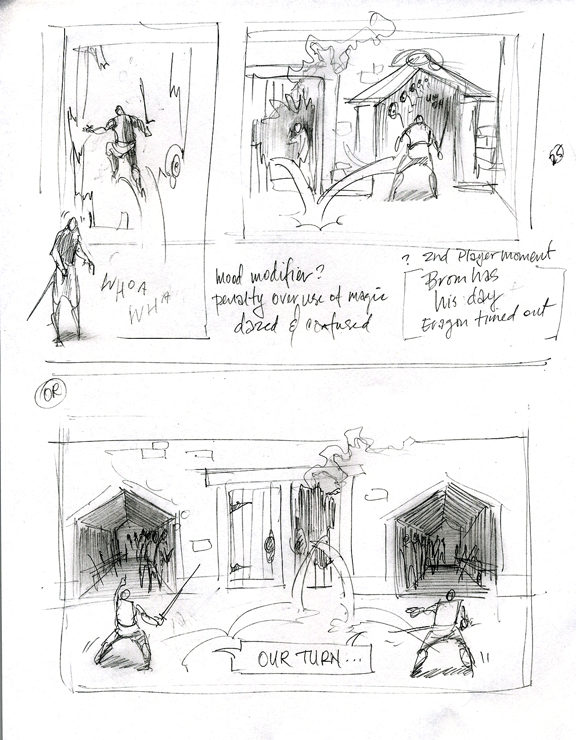 UGH
WHOA
WHA
Mood modifier?
penalty over use of magic
dazed & confused
? 2nd Player moment
Brom has
his day
Eragon timed out
OR
OUR TURN...